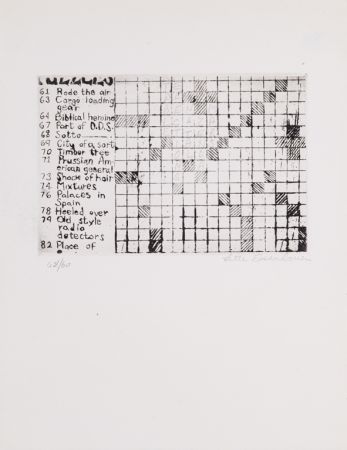 PUZZLES
61 Rode the air
63 Cargo loading
gear
64 Biblical heroine
67 Part of D.D.S.
68 Sotto
69 City of a sort
70 Timber tree
71 Prussian Am
erican general
73 Shade of hair
74 Mixtures
76 Palaces in
Spain
78 Heeled over
79 Old style
radio
detectors
82 Place of